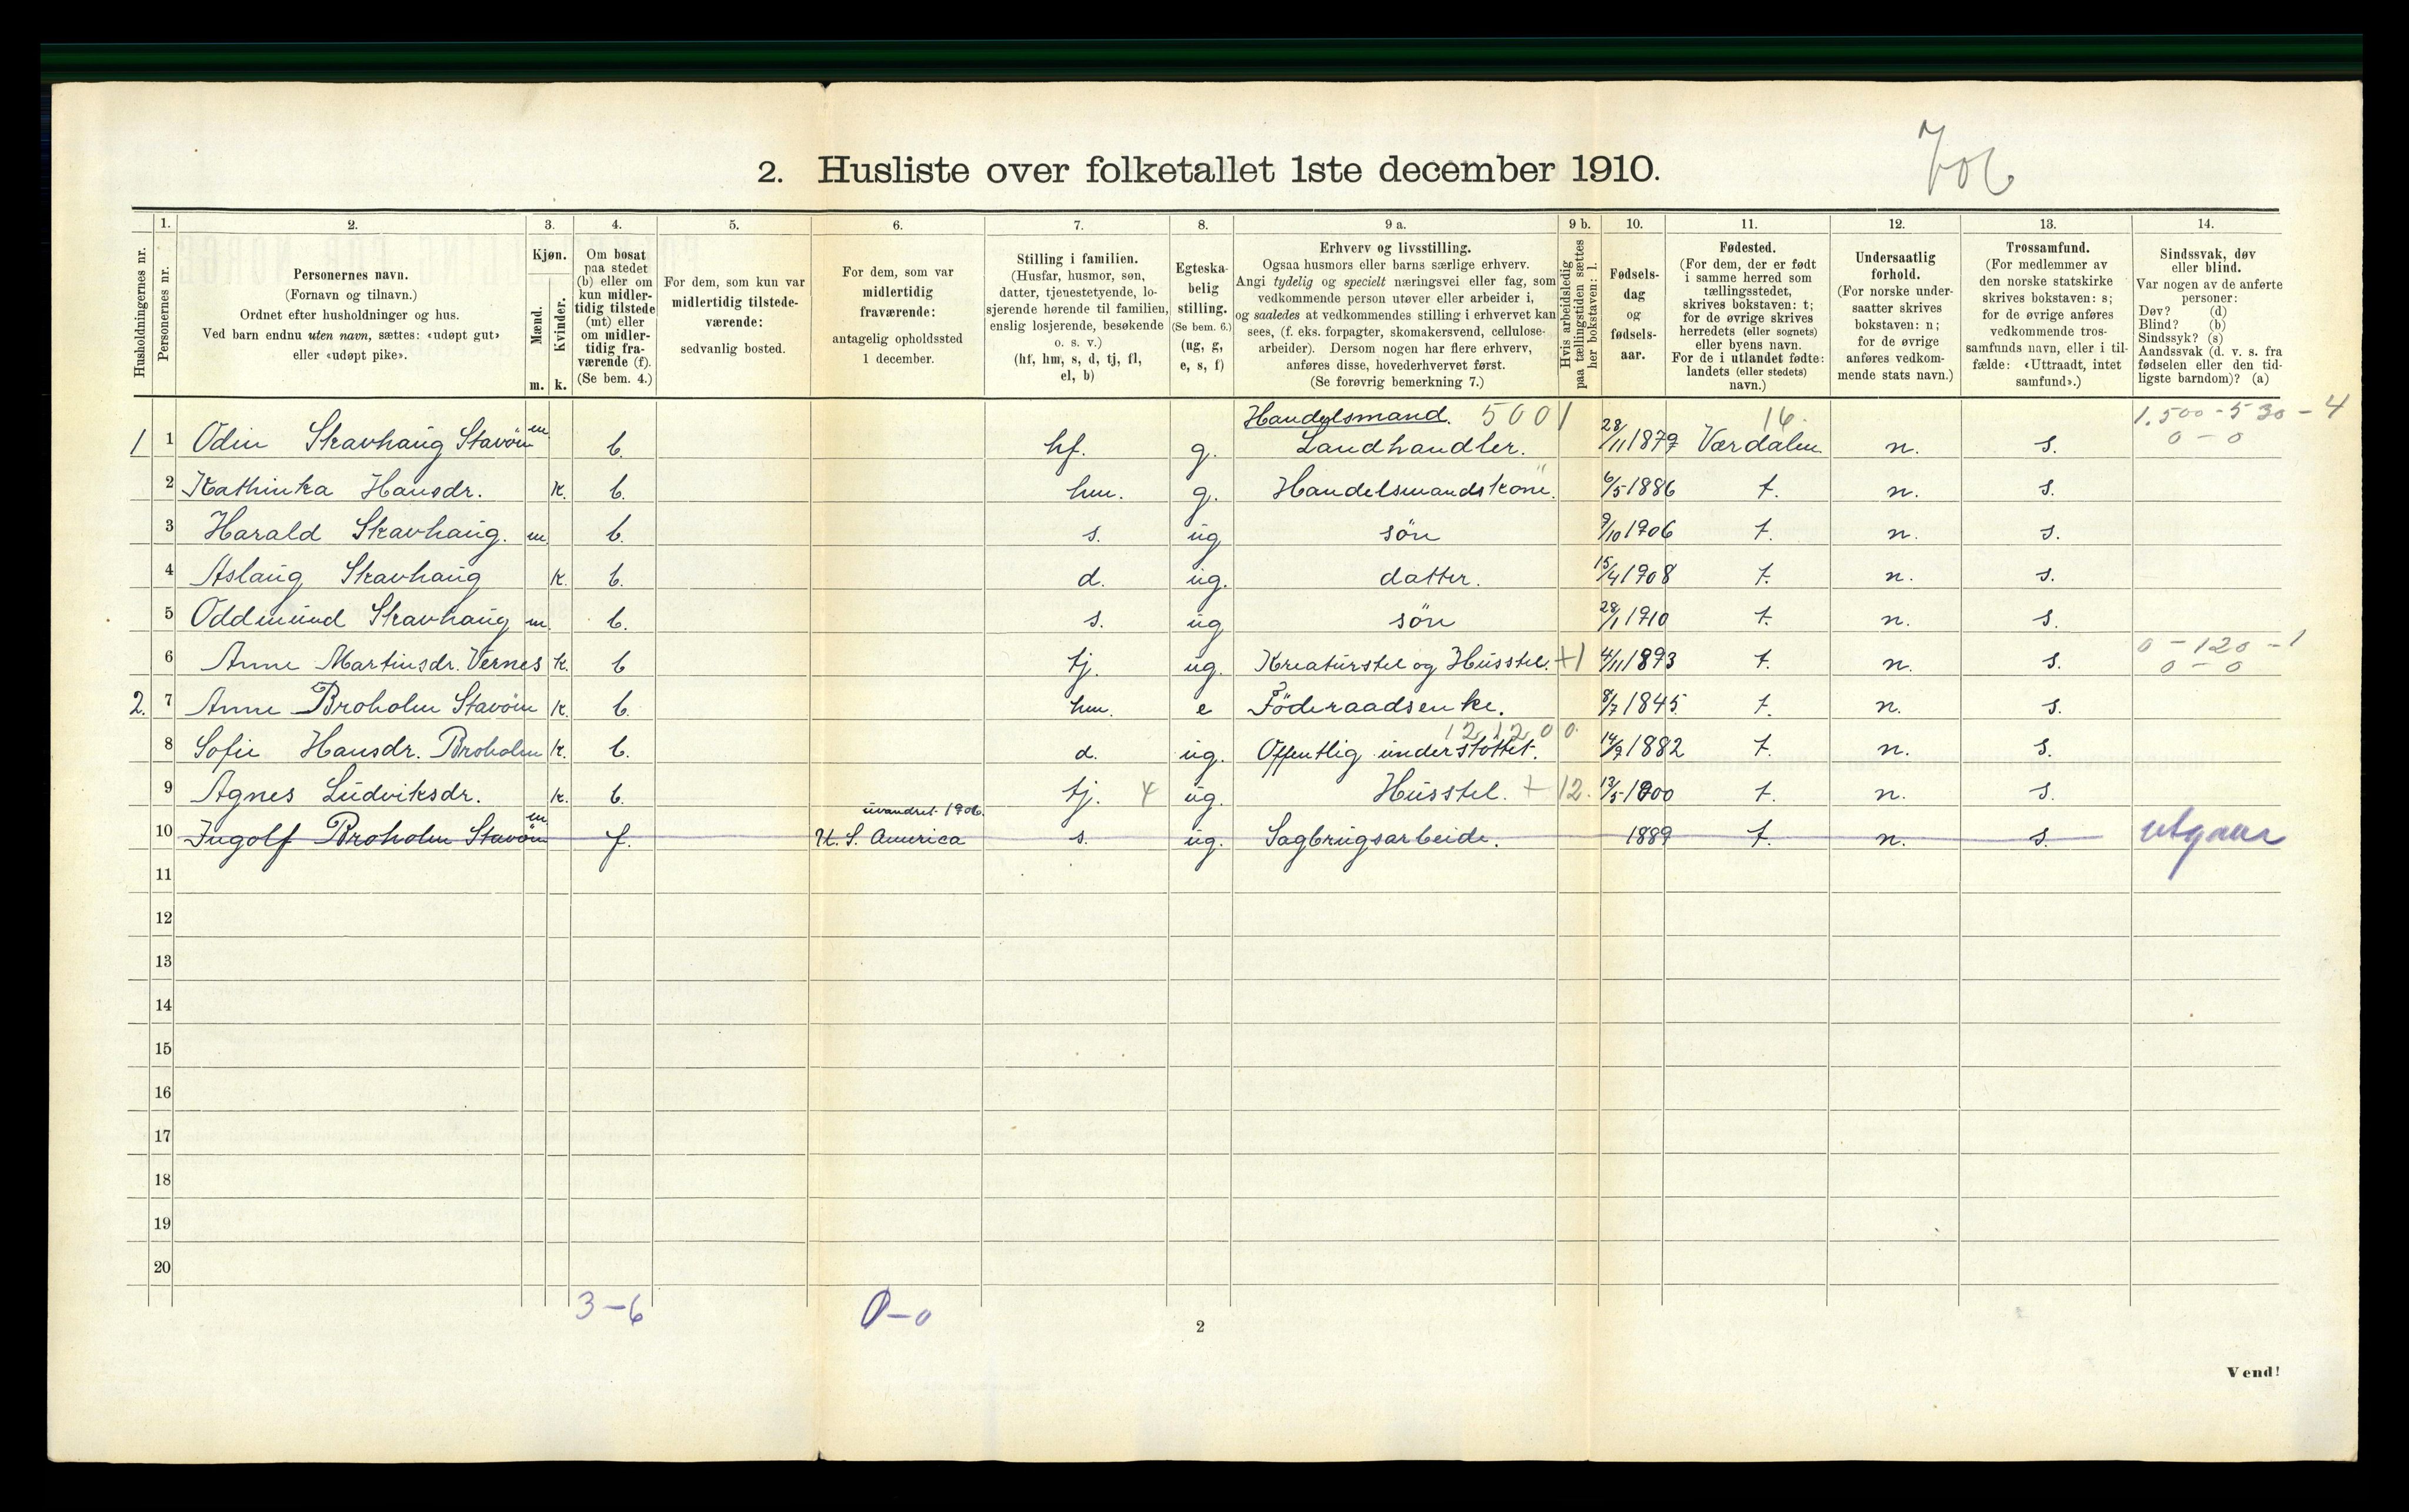 706
2. Husliste over folketallet 1ste december 1910.
Husholdningernes nr.
1.
Personernes nr.
2.
Personernes navn.
(Fornavn og tilnavn.)
Ordnet efter husholdninger og hus.
Ved barn endnu uten navn, sættes: «udøpt gut»
eller «udøpt pike».
3.
Kjøn.
Mænd.
Kvinder.
m. k.
4.
Om bosat
paa stedet
(b) eller om
kun midler-
tidig tilstede
(mt) eller
om midler-
tidig fra-
værende (f).
(Se bem. 4.)
5.
For dem, som kun var
midlertidig tilstede-
værende:
sedvanlig bosted.
6.
For dem, som var
midlertidig
fraværende:
antagelig opholdssted
1 december.
7.
Stilling i familien.
(Husfar, husmor, søn,
datter, tjenestetyende, lo-
sjerende hørende til familien,
enslig losjerende, besøkende
o. s. v.)
(hf, hm, s, d, tj, fl,
el, b)
8.
Egteska-
belig
stilling.
(Se bem. 6.)
(ug, g,
e, s, f)
9 a.
Erhverv og livsstilling.
Ogsaa husmors eller barns særlige erhverv.
Angi tydelig og specielt næringsvei eller fag, som
vedkommende person utøver eller arbeider i,
og saaledes at vedkommendes stilling i erhvervet kan
sees, (f. eks. forpagter, skomakersvend, cellulose-
arbeider). Dersom nogen har flere erhverv,
anføres disse, hovederhvervet først.
(Se forøvrig bemerkning 7.)
9 b.
Hvis arbeidsledig
paa tællingstiden sættes
her bokstaven: l.
10.
Fødsels-
dag
og
fødsels-
aar.
11.
Fødested.
(For dem, der er født
i samme herred som
tællingsstedet,
skrives bokstaven: t;
for de øvrige skrives
herredets (eller sognets)
eller byens navn.
For de i utlandet fødte:
landets (eller stedets)
navn.)
12.
Undersaatlig
forhold.
(For norske under-
saatter skrives
bokstaven: n;
for de øvrige
anføres vedkom-
mende stats navn.)
13.
Trossamfund.
(For medlemmer av
den norske statskirke
skrives bokstaven: s;
for de øvrige anføres
vedkommende tros-
samfunds navn, eller i til-
fælde: «Uttraadt, intet
samfund».)
14.
Sindssvak, døv
eller blind.
Var nogen av de anførte
personer:
Døv? (d)
Blind? (b)
Sindssyk? (s)
Aandssvak (d. v. s. fra
fødselen eller den tid-
ligste barndom)? (a)
Handelsmand. 5001 16. 1.500-530-4
1 1 Odin Skavhaug Stavöin m b. hf. g. Landhandler. 28/11 1879 Værdalen n. s. 0-0
2 Kathinka Hansdr. k. b. hm. g. Handelsmandskone. 6/5 1886 t. n. s.
3 Harald Skavhaug. m. b. s. ug sön 9/10 1906 t. n. s.
4 Aslaug Skavhaug k. b. d. ug. datter. 15/4 1908 t. n. s.
5 Oddmund Skavhaug m. b. s. ug sön 28/1 1910 t. n. s.
0-120-1
6 Anne Martinsdr. Vernes k. b tj. ug. Kreaturstel og Husstel. +1 4/11 1893 t. n. s. 0-0
2. 7 Anne Broholm Stavöin k. b. hm. e Föderaadsenke. 8/7 1845. t. n. s.
121200
8 Sofie Hansdr. Broholm k. b. d. ug. Offentlig understöttet. 14/9 1882 t. n. s.
9 Agnes Ludviksdr. k. b. tj. 4 ug. Husstel. +12. 13/5 1900 t. n. s.
uvandret 1906.
10 Ingolf Broholm Stavöin m f. U. S. America s. ug. Sagbrugsarbeide. 1889 t. n. s. utgaar
11
12
13
14
15
16
17
18
19
20
3-6 0-0
2
Vend!